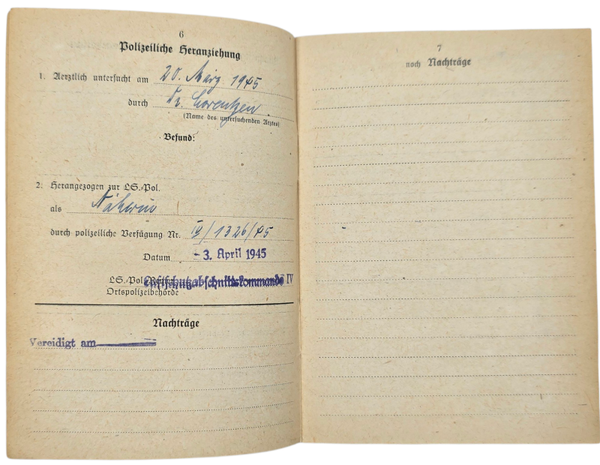 6
Polizeiliche Heranziehung
1. Aerztlich untersucht am 20. März 1945
durch Dr. Lorentzen
(Name des untersuchenden Arztes)
Befund:
2. Herangezogen zur LS.-Pol.
als Näherin
durch polizeiliche Verfügung Nr. IV/1326/45
Datum -3. April 1945
LS.-Pol.
Luftschutzabschnittskommando IV
Ortspolizeibehörde
Nachträge
Vereidigt am
7
noch Nachträge